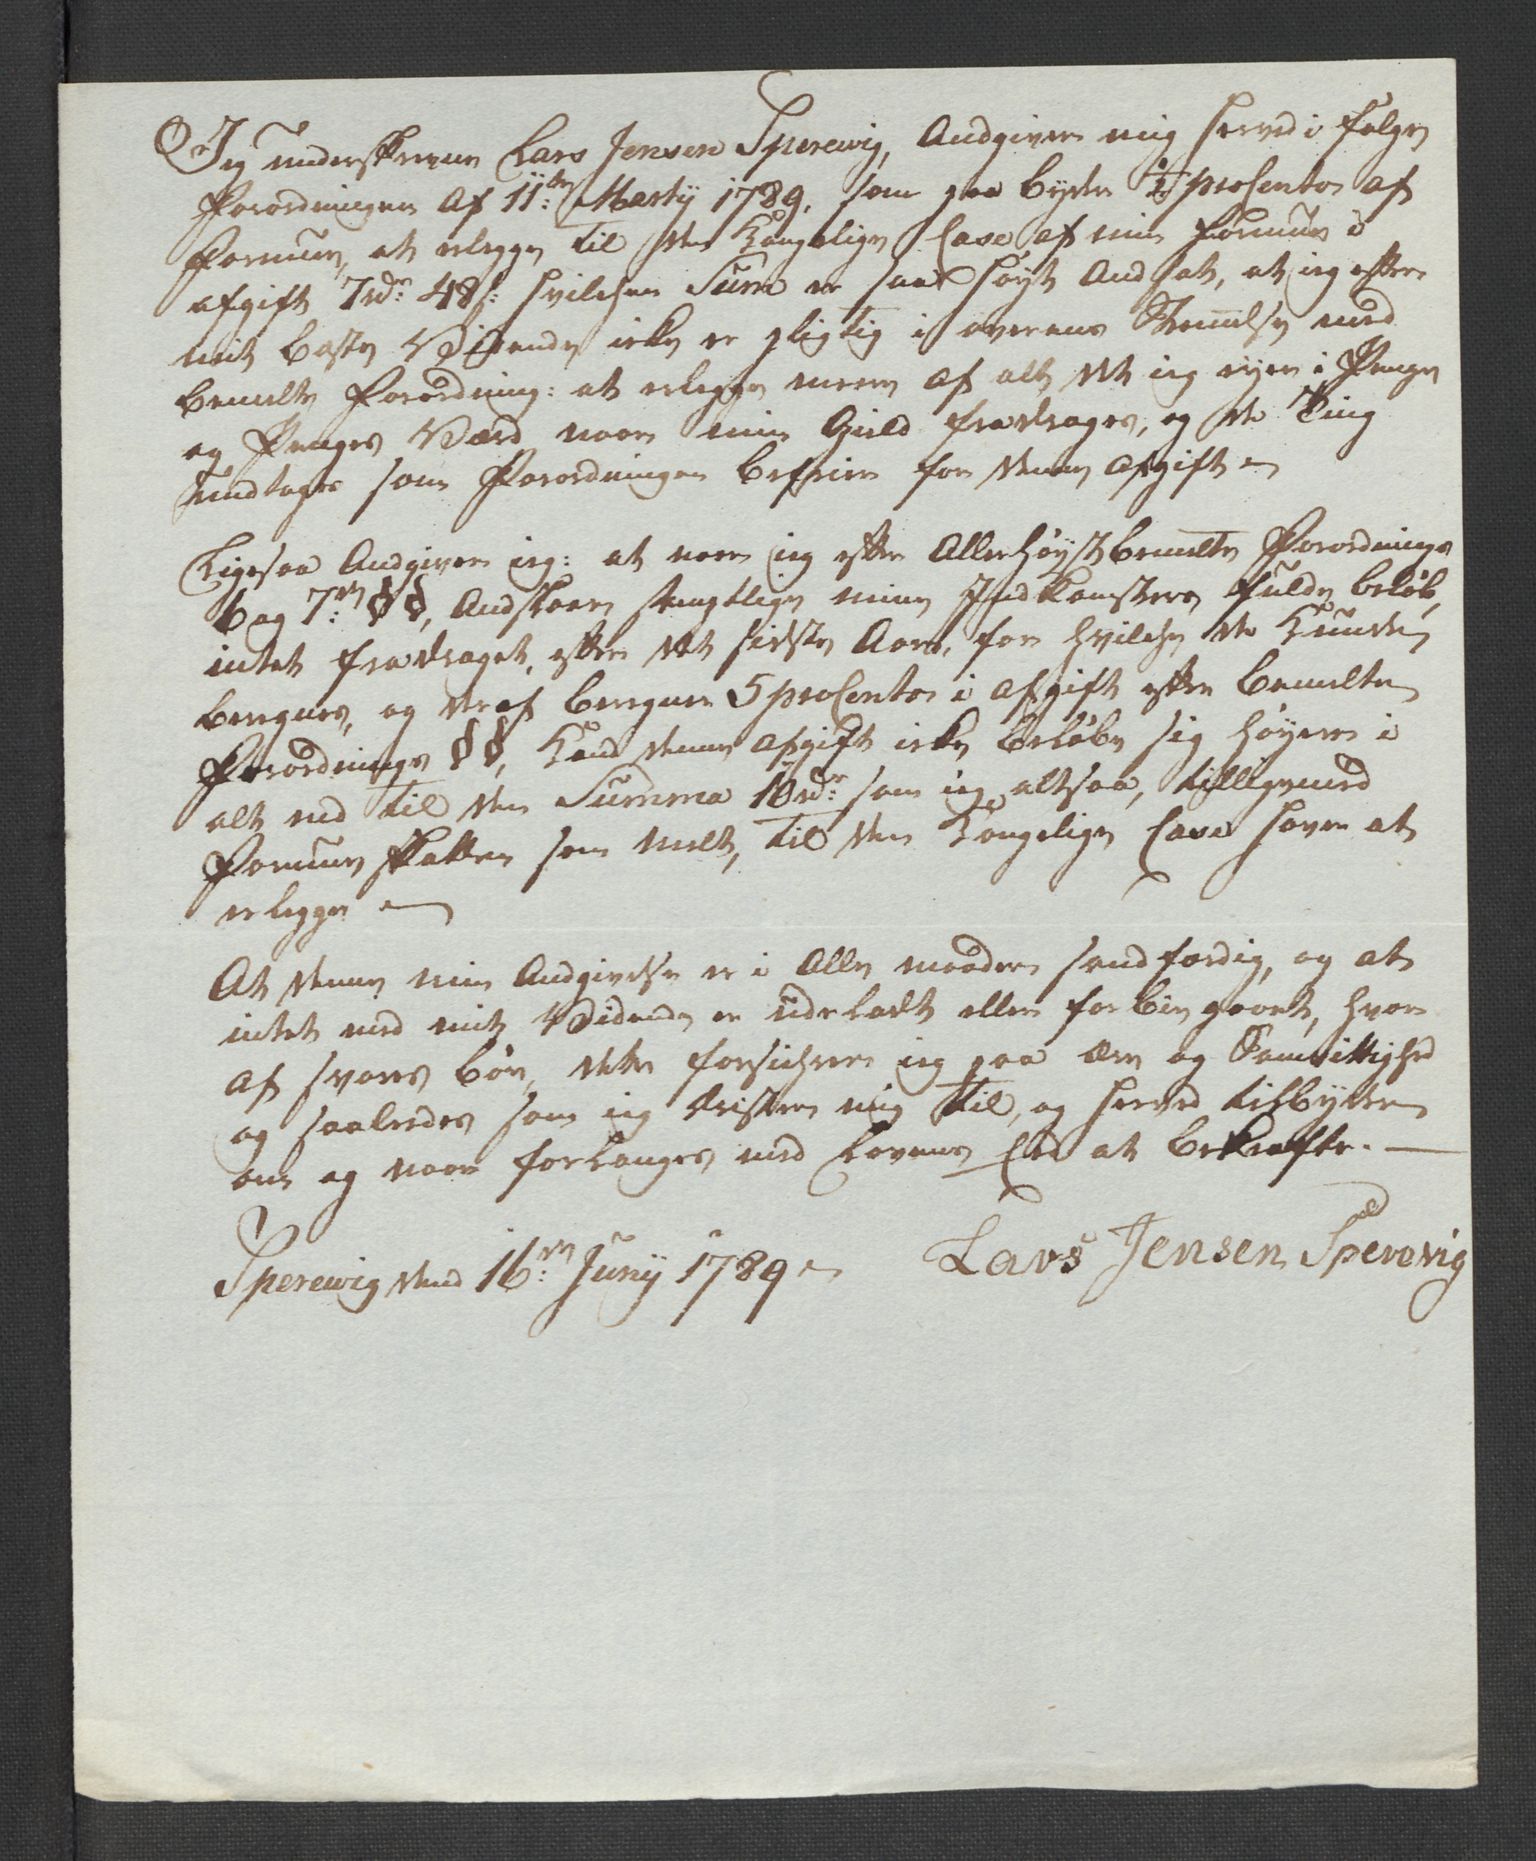 Jeg underskrevne Lars Jensen Sperewig, Andgiver mig herved i følge
Forordningen Af 11te Martÿ 1789, som paa byder ½ proCento af
Formue, at erlegge til den Kongelige Casse af min Formue i
afgift 7rdr 48s: hvilchen Sum er saa høyt And sat, at ieg efter
mit beste Vidende icke er pligtig i overens Stemmelse med
bemelte Forordning: at erlegge mere af alt det ieg eyer i Penge
og Penges Værd naar min Gield fradrages, og de Ting
undtages som Forordningen befrier for denne Afgift
Ligesaa Andgiver ieg: at naar ieg efter Allerhøystbemelte Forordnings
6 og 7de §§, Andslaaer samptlige mine Indkomsters fulde beløb,
intet fradraget, efter det sidste Aar, for hvilche de Kunde
beregnes, og deraf beregner 5 proCento i Afgift efter bemelte
Forordnings §§, Kand denne Afgift icke beløbe sig høyere i
alt end til den Summa 10rdr som ieg altsaa, tilligemed
Formue skatten som melt, til den Kongelige Casse haver at
erlegge
At denne min Andgivelse er i Alle maader sandfærdig, og at
intet med mit Vidende er udeladt eller forbiegaaet, hvor
af svares bør, dette forsichrer ieg paa ære og Samvittighed
og saaledes som ieg trøster mig til, og herved tilbyder
om og naar forlanges med Lovens Eed at bekræfte.
Sperewig dend 16de Junÿ 1789 Lars Jensen Sperevig